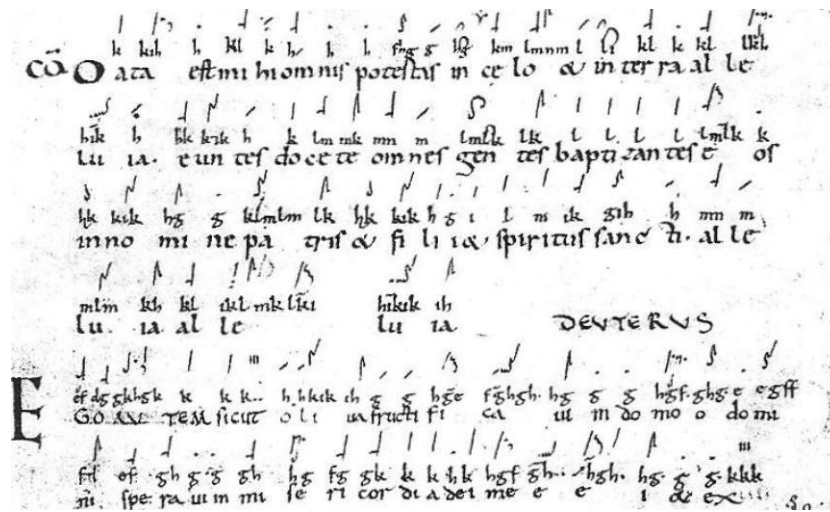 k kih h kl k h h h g g km lmnm l l kl k kl lkh
Co Data est mi hi omnis potestas in ce lo & in ter ra al le
hik h hk kik h k lm mk mn m lk l l l l k
lu ia. e un tes do ce te omnes gen tes bapti zan tes e os
hk kik hg g klmlm lk hk kik h g i l m ik gih h mn m
in no mi ne pa tris & fi li i & spiritus sanc ti. al le
mlm kh kl ikl mk lki hikik ih
lu ia al le lu ia
DEUTERUS
ef dg gkhgk k k k h hkik ih g g hge fghgh hg g g hgf ghg e egff
EGO AUTEM sicut o li ua fructi fi ca ui in do mo o do mi
ef gh g g gh hg fg gk k k hk hgf gh hgh hg g g kkk
ni. spe ra ui in mi se ri cor di a dei me e e i & ex